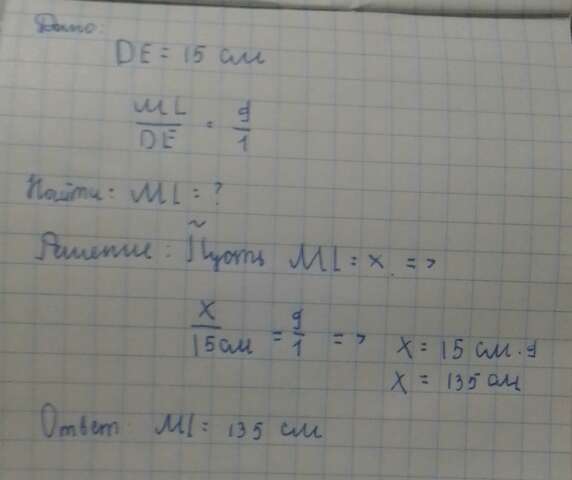 Дано:
DE = 15 см
ML/DE = 9/1
Найти: ML = ?
Решение: Пусть ML = x =>
x/15 см = 9/1 => x = 15 см · 9
x = 135 см
Ответ: ML = 135 см